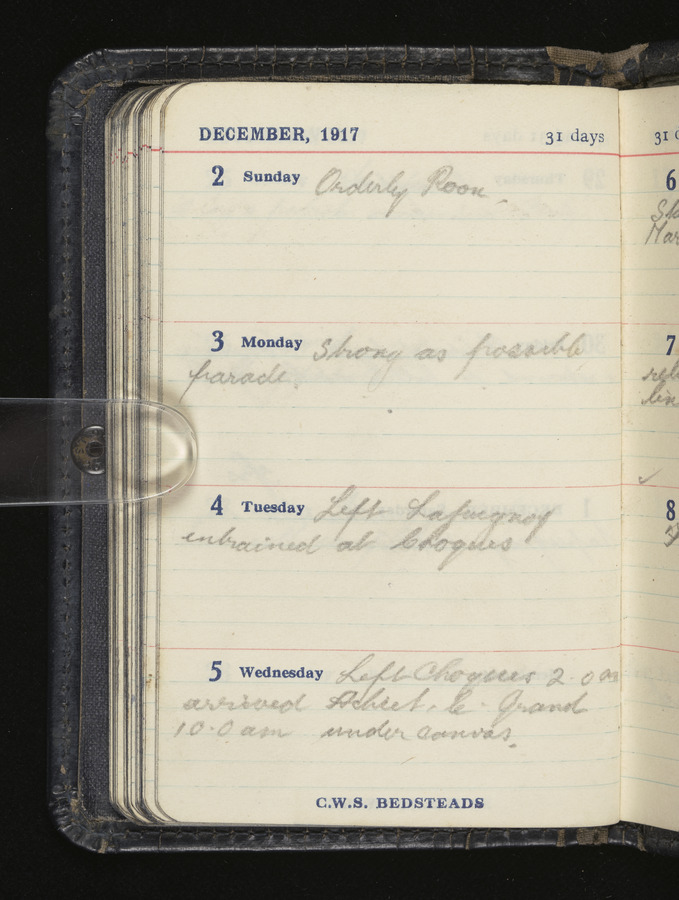 DECEMBER, 1917 31 days
2 Sunday Orderly Room
3 Monday Strong as possible
parade.
4 Tuesday Left Lapugnoy
entrained at Choques
5 Wednesday Left Choques 2.0 am
arrived Achiet. le. Grand
10.0 am under canvas.
C.W.S. BEDSTEADS
31
6
7
8